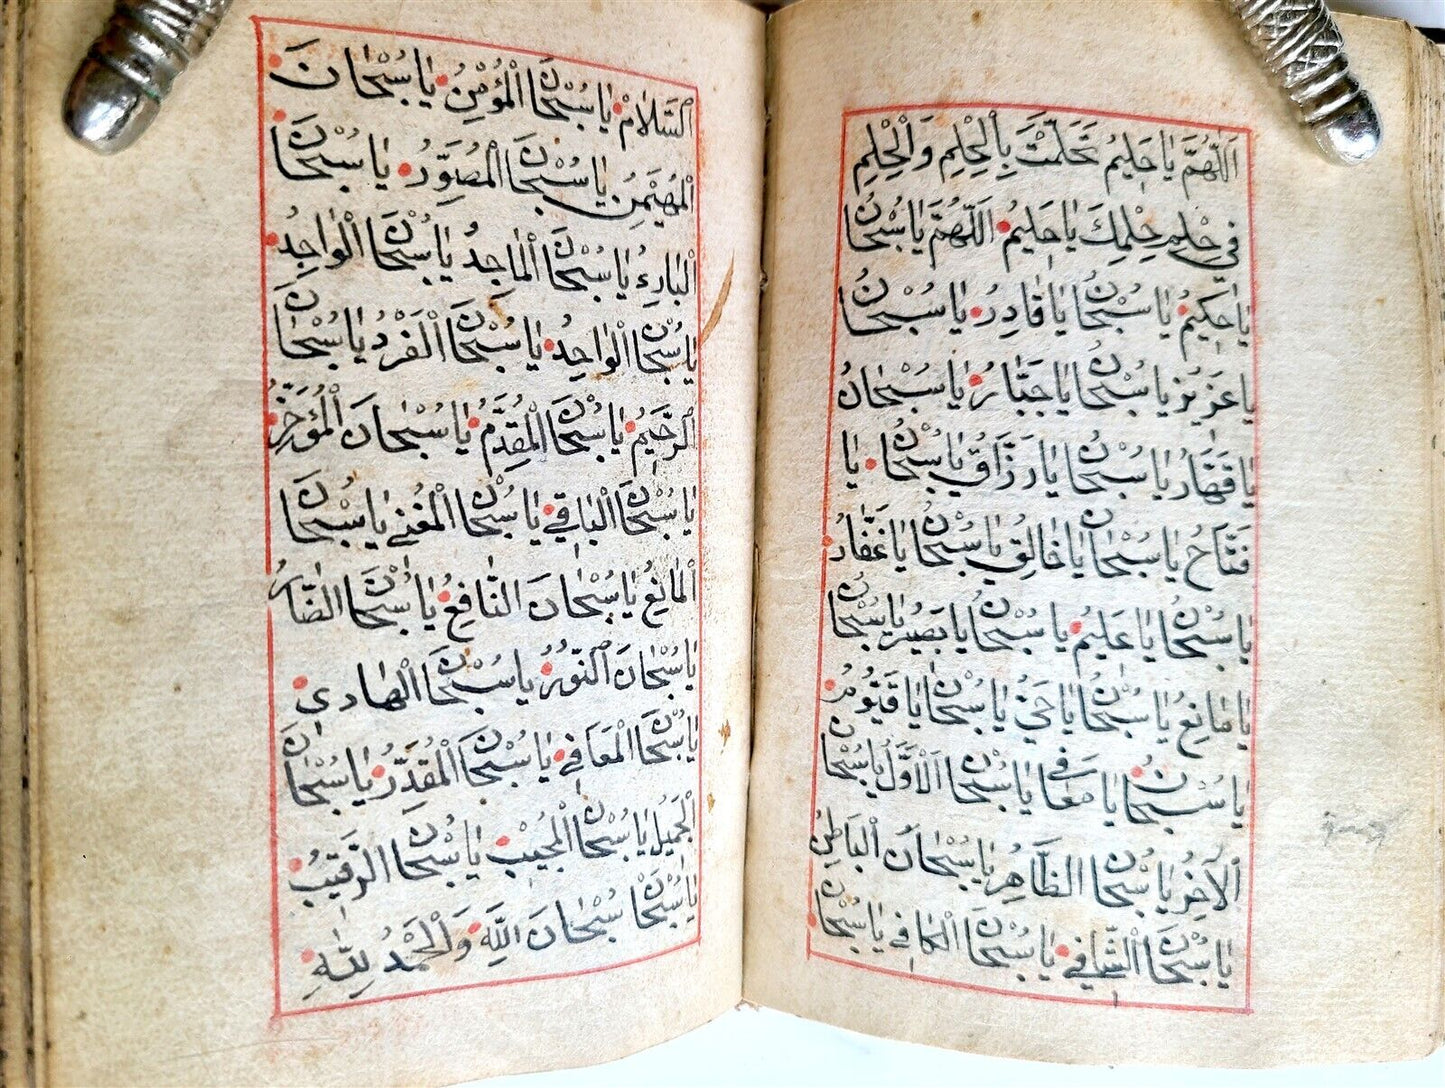 اَللّٰهُمَّ يَا حَلِيمُ تَحَلَّمْتَ بِالْحِلْمِ وَالْحِلْمِ
فِي حِلْمِ حِلْمِكَ يَا حَلِيمُ اَللّٰهُمَّ يَا سُبْحَانُ
يَا حَكِيمُ يَا سُبْحَانُ يَا قَادِرُ يَا سُبْحَانُ
يَا عَزِيزُ يَا سُبْحَانُ يَا جَبَّارُ يَا سُبْحَانُ
يَا قَهَّارُ يَا سُبْحَانُ يَا رَزَّاقُ يَا سُبْحَانُ يَا
فَتَّاحُ يَا سُبْحَانُ يَا خَالِقُ يَا سُبْحَانُ يَا غَفَّارُ
يَا سُبْحَانُ يَا عَلِيمُ يَا سُبْحَانُ يَا بَصِيرُ يَا سُبْحَانُ
يَا مَانِعُ يَا سُبْحَانُ يَا حَيُّ يَا سُبْحَانُ يَا قَيُّومُ
يَا سُبْحَانُ يَا مَعَافِي يَا سُبْحَانَ الْاَوَّلُ يَا سُبْحَانَ
الْاٰخِرُ يَا سُبْحَانَ الظَّاهِرُ يَا سُبْحَانَ الْبَاطِنُ
يَا سُبْحَانَ الشَّافِي يَا سُبْحَانَ الْكَافِي يَا سُبْحَانَ
اَلسَّلَامُ يَا سُبْحَانَ الْمُؤْمِنُ يَا سُبْحَانَ
الْمُهَيْمِنُ يَا سُبْحَانَ الْمُصَوِّرُ يَا سُبْحَانَ
الْبَارِءُ يَا سُبْحَانَ الْمَاجِدُ يَا سُبْحَانَ الْوَاجِدُ
يَا سُبْحَانَ الْوَاحِدُ يَا سُبْحَانَ الْفَرْدُ يَا سُبْحَانَ
الرَّحِيمُ يَا سُبْحَانَ الْمُقَدِّمُ يَا سُبْحَانَ الْمُؤَخِّرُ
يَا سُبْحَانَ الْبَاقِي يَا سُبْحَانَ الْمُغْنِي يَا سُبْحَانَ
الْمَانِعُ يَا سُبْحَانَ النَّافِعُ يَا سُبْحَانَ الضَّارُّ
يَا سُبْحَانَ النُّورُ يَا سُبْحَانَ الْهَادِي
يَا سُبْحَانَ الْمَعَافِي يَا سُبْحَانَ الْمُقْتَدِرُ يَا سُبْحَانَ
الْجَمِيلُ يَا سُبْحَانَ الْمُجِيبُ يَا سُبْحَانَ الرَّقِيبُ
يَا سُبْحَانَ سُبْحَانَ اللّٰهِ وَالْحَمْدُ لِلّٰهِ